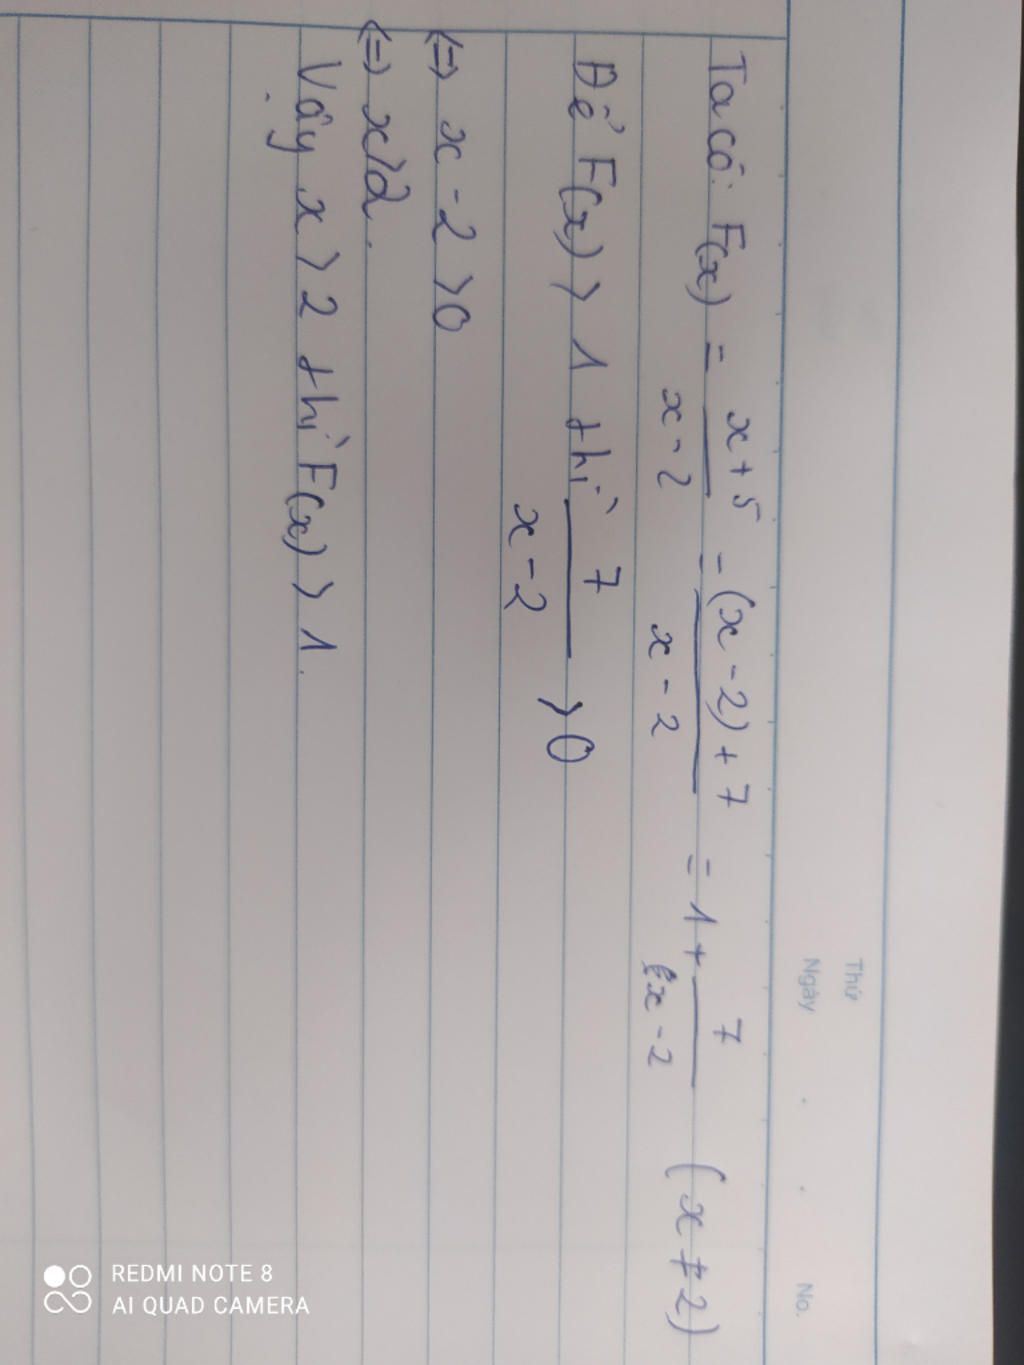 Thứ
Ngày . . No.
Ta có: F(x) = x+5/x-2 = (x-2)+7/x-2 = 1+ 7/x-2 (x≠2)
Để F(x) > 1 thì 7/x-2 >0
(=) x-2 >0
(=) x>2.
Vậy x>2 thì F(x) > 1.
REDMI NOTE 8
AI QUAD CAMERA